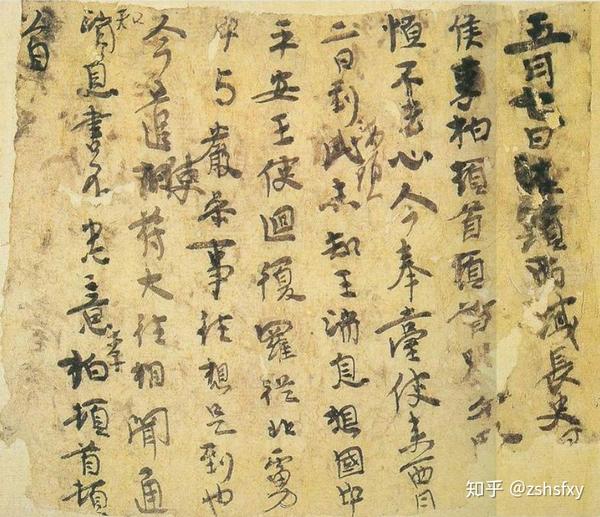 五月七日海頭西域長史
侯李柏頓首頓首別
恒不去心今奉臺使來西月
二日到此海頭未知王消息想國中
平安王使迴復羅從北虜
中與嚴參事往想是到也
今遣使苻大往相聞通
知消息書不悉意李柏頓首頓
首
知乎 @zshsfxy